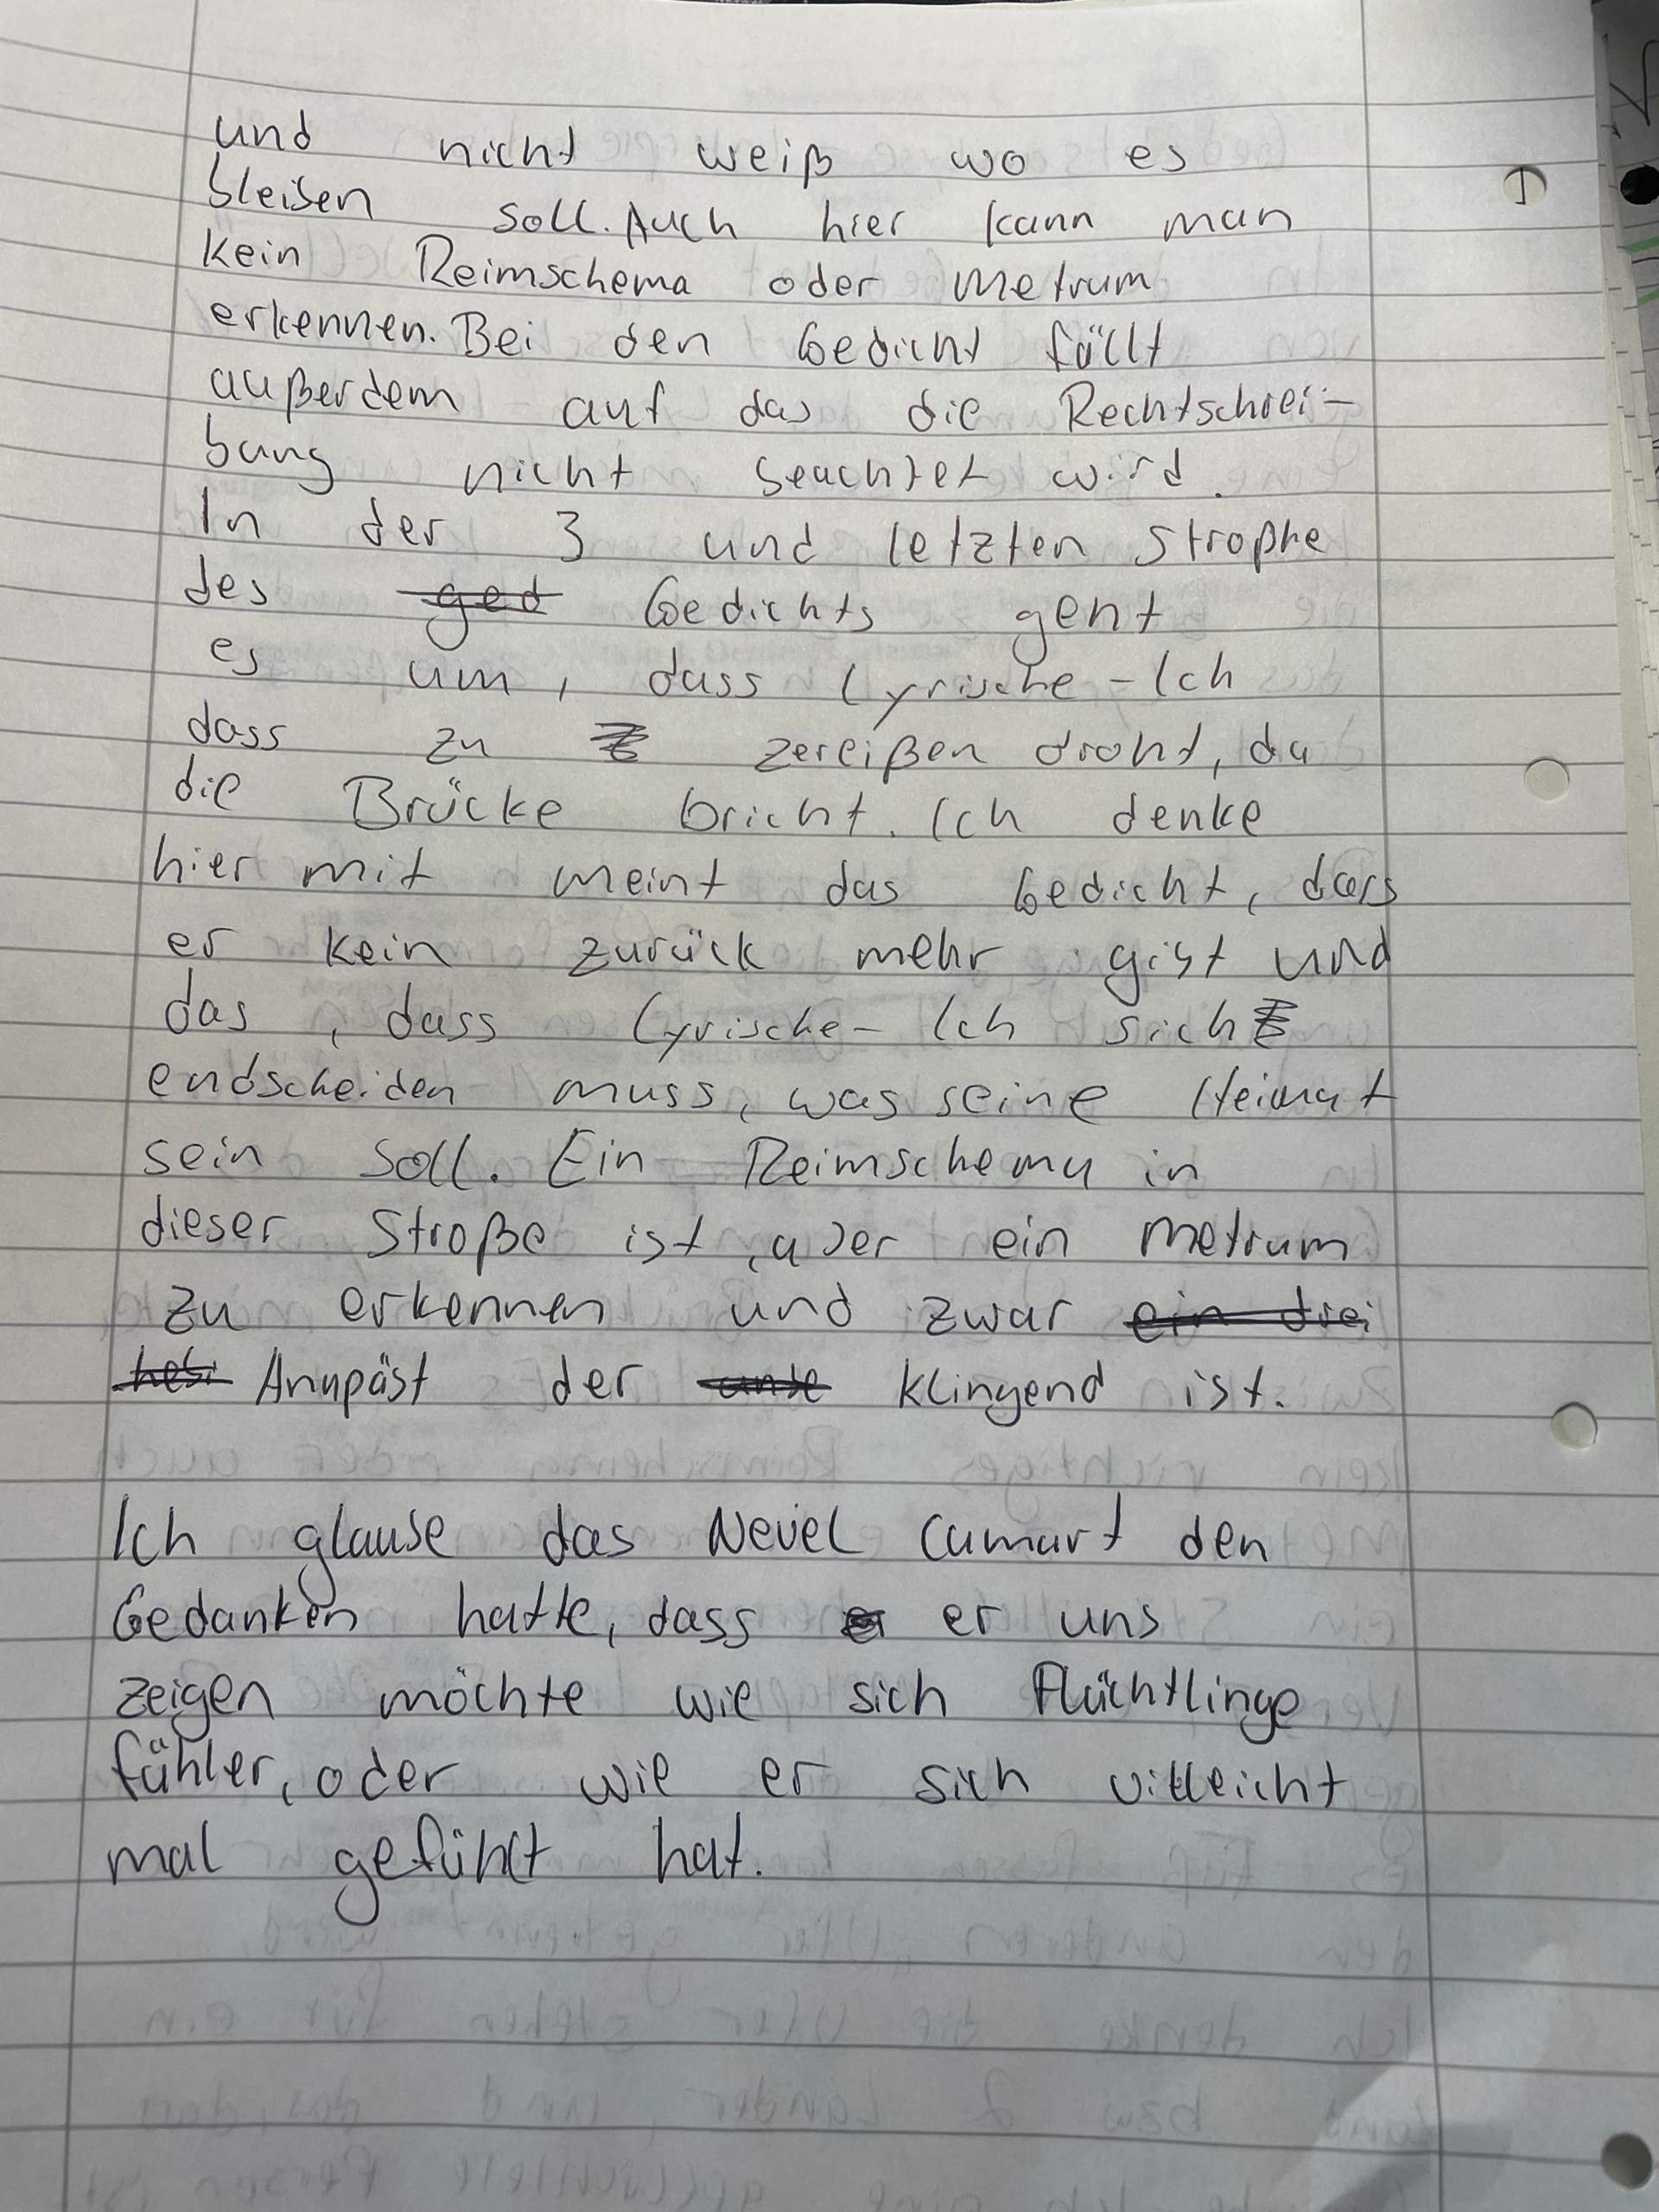 und nicht weiß wo es
bleiben soll. Auch hier kann man
kein Reimschema oder Metrum
erkennen. Bei den Gedicht fällt
außerdem auf das die Rechtschrei-
bung nicht beachtet wird.
In der 3 und letzten Strophe
des ged Gedichts geht
es um, dass Lyrische-Ich
dass zu zereißen droht, da
die Brücke bricht. Ich denke
hier mit meint das Gedicht, dass
er kein zurück mehr gibt und
das, dass Lyrische-Ich sich
endscheiden muss, was seine Heimat
sein soll. Ein Reimschema in
dieser Stroße ist, aber ein Metrum
zu erkennen und zwar ein drei
hebi Anapäst der klingend ist.
Ich glaube das Nevel Cumart den
Gedanken hatte, dass er uns
zeigen möchte wie sich Flüchtlinge
fühler, oder wie er sich villeicht
mal gefühlt hat.